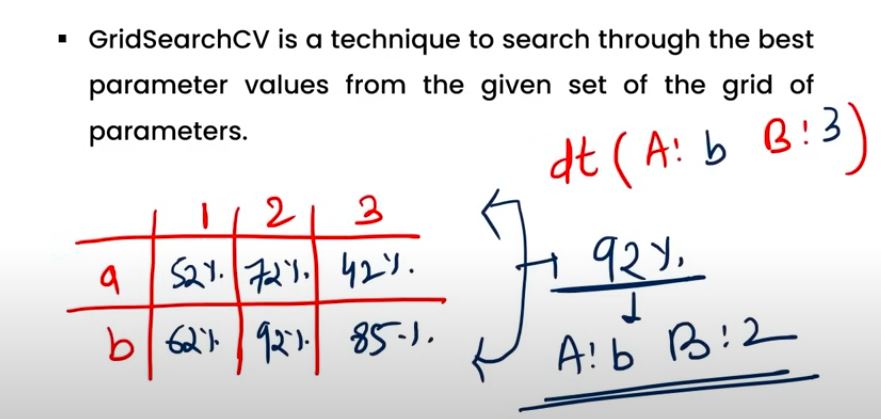 ▪ GridSearchCV is a technique to search through the best
parameter values from the given set of the grid of
parameters.
dt (A: b B: 3)
1 2 3
a 52% 72% 42%.
b 62% 92% 85%.
92%.
A: b B: 2